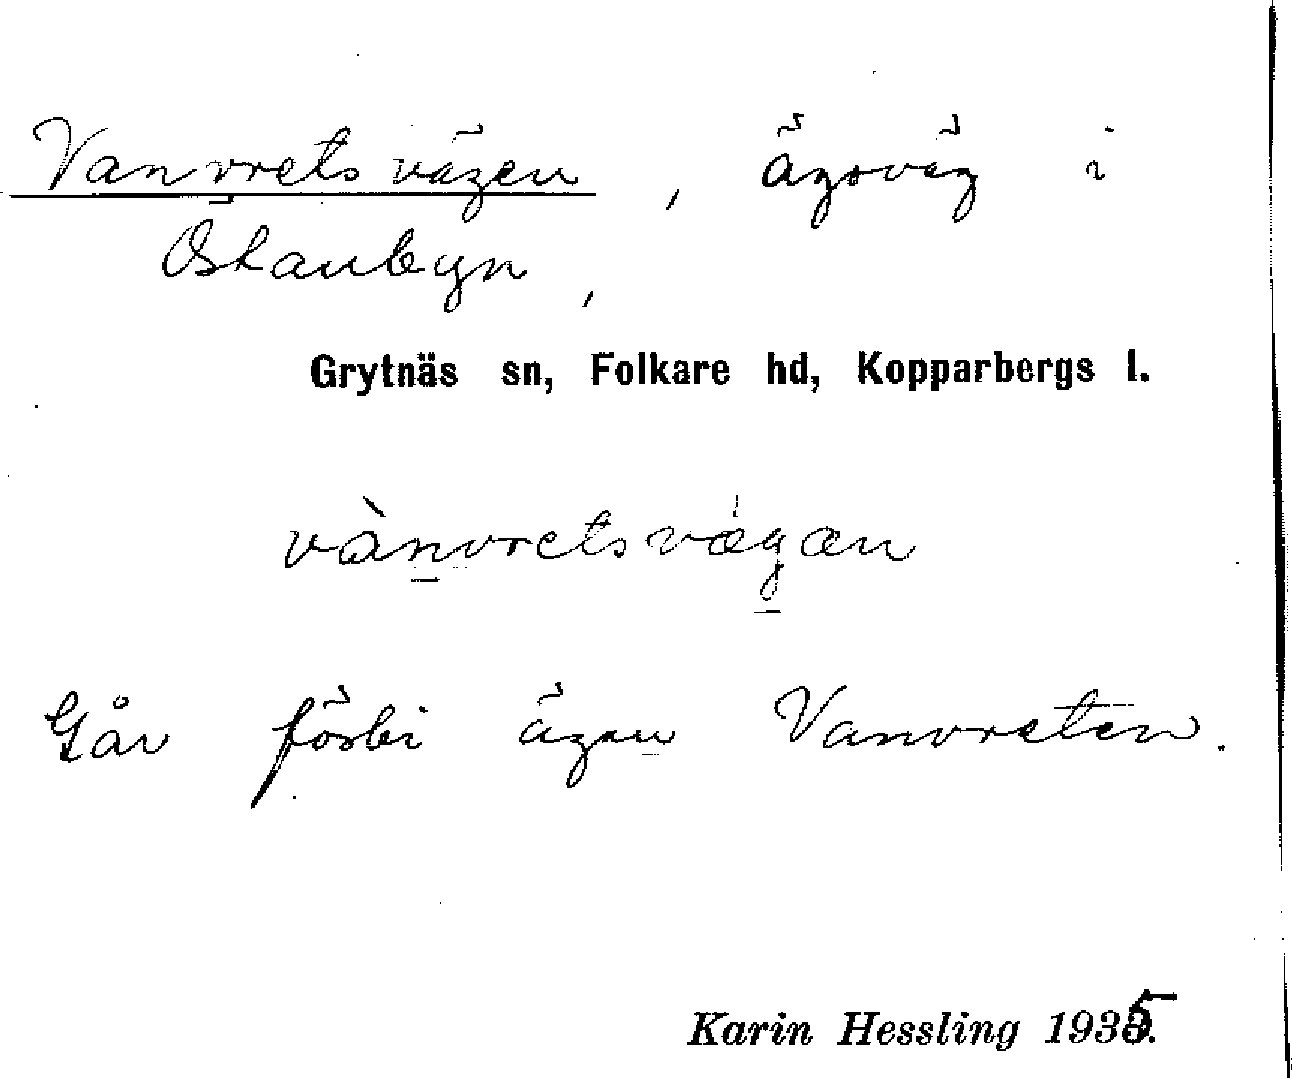 Vanvretsvägen, ägoväg i
Östanbyn,
Grytnäs sn, Folkare hd, Kopparbergs l.
vànvretsvægæn
Går förbi ägan Vanvreten.
Karin Hessling 1935.